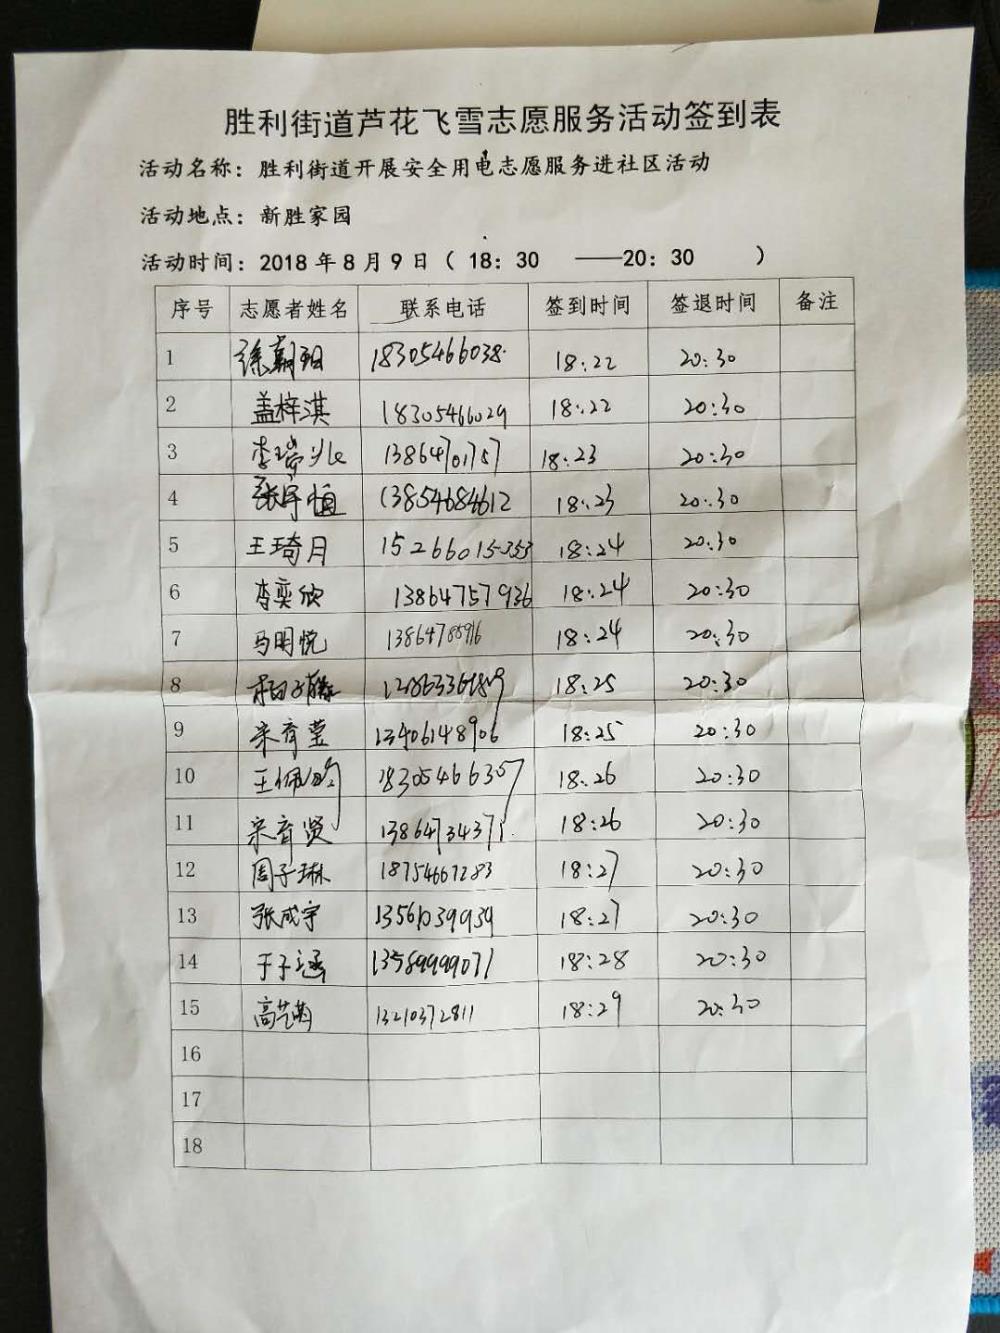 胜利街道芦花飞雪志愿服务活动签到表
活动名称：胜利街道开展安全用电志愿服务进社区活动
活动地点：新胜家园
活动时间：2018年8月9日（18：30 ——20：30 ）
序号 志愿者姓名 联系电话 签到时间 签退时间 备注
1 徐朝阳 18305466038 18:22 20:30
2 盖梓淇 18305466029 18:22 20:30
3 李瑞兆 13864701757 18:23 20:30
4 张宇恒 13854684612 18:23 20:30
5 王琦月 15266015353 18:24 20:30
6 李奕欣 13864757936 18:24 20:30
7 马明悦 13864785916 18:24 20:30
8 18:25 20:30
9 宋育莹 13406148906 18:25 20:30
10 18305466357 18:26 20:30
11 宋育贤 13864734371 18:26 20:30
12 周子琳 18754667283 18:27 20:30
13 张成宇 13561039939 18:27 20:30
14 于子涵 13589999071 18:28 20:30
15 高艺菡 13210372811 18:29 20:30
16
17
18